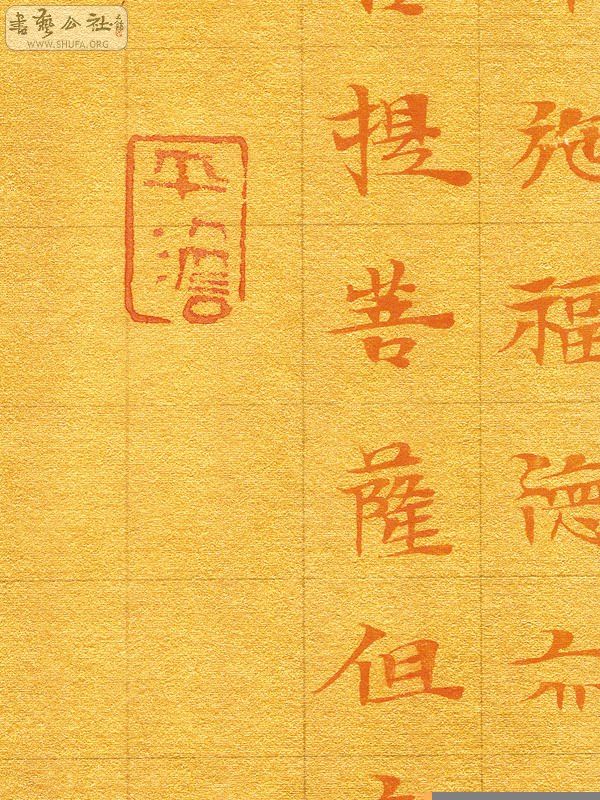 施福德亦
提菩薩但
平澹
書藝公社
WWW.SHUFA.ORG